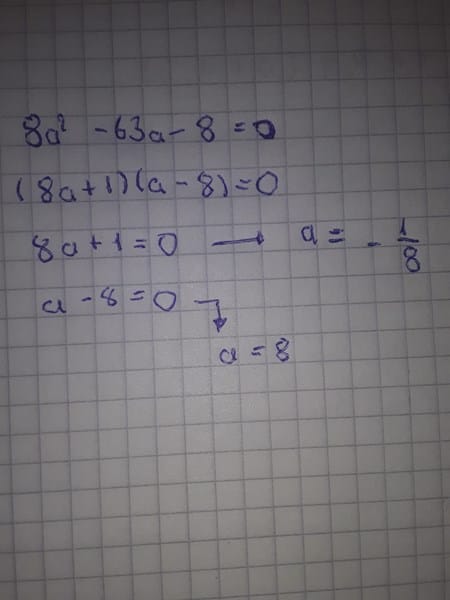 8a² - 63a - 8 = 0
(8a + 1)(a - 8) = 0
8a + 1 = 0 → a = - 1/8
a - 8 = 0 ↴
a = 8